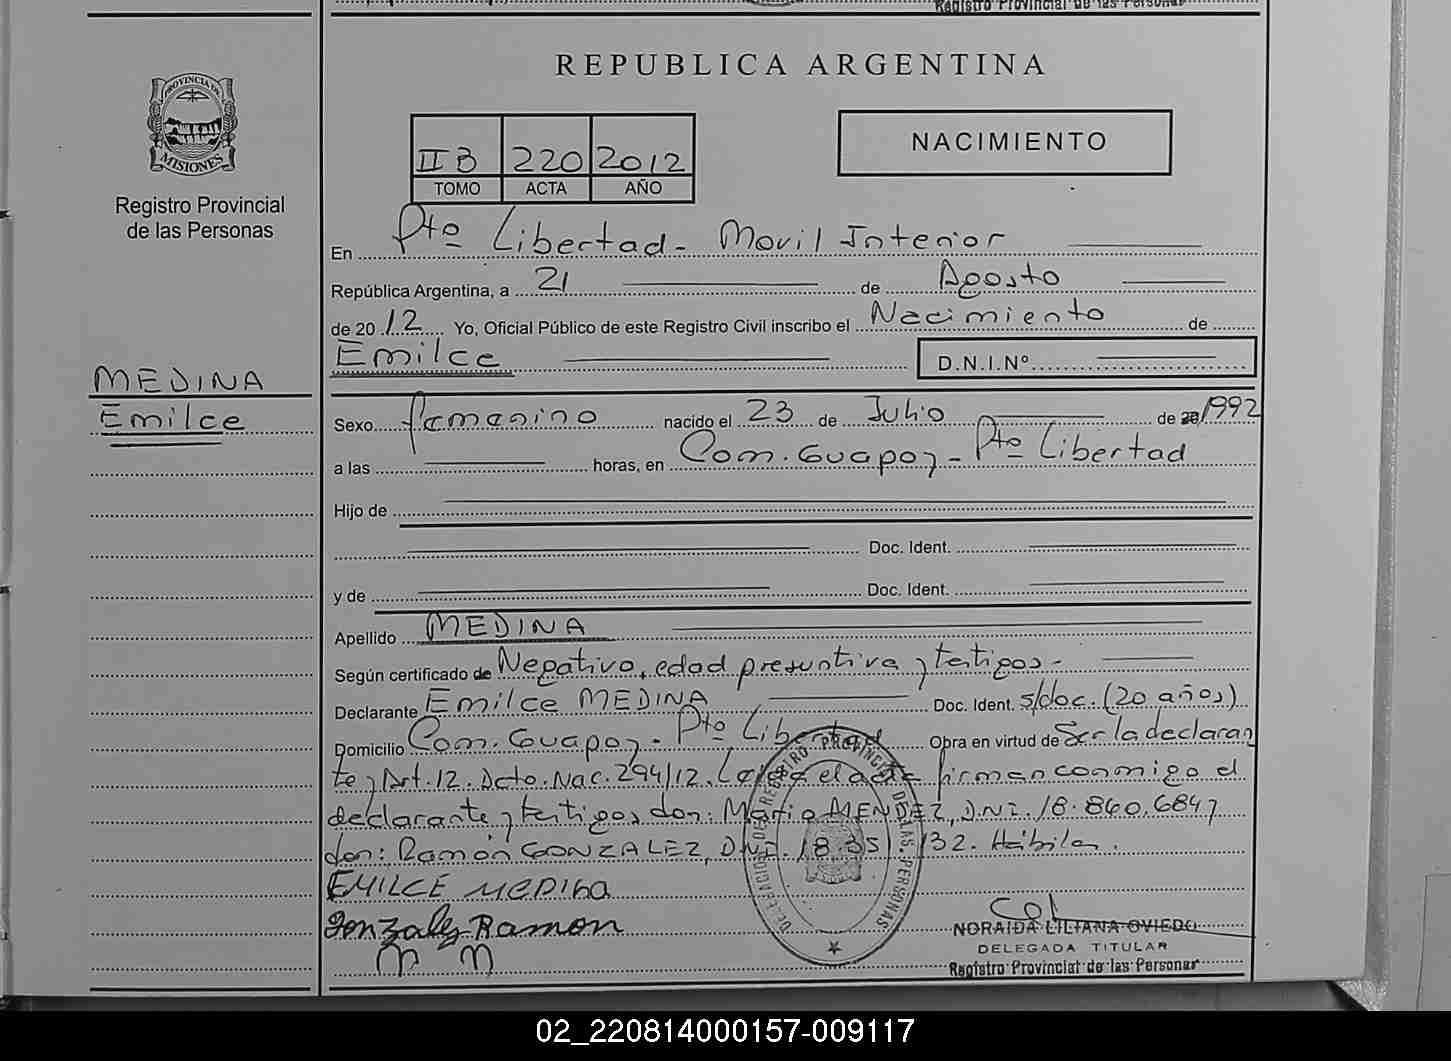 Registro Provincial de las Personas
REPUBLICA ARGENTINA
PROVINCIA DE
MISIONES
Registro Provincial
de las Personas
II B 220 2012
TOMO ACTA AÑO
NACIMIENTO
En Pto Libertad - Movil Interior
República Argentina, a 21 de Agosto
de 2012 Yo, Oficial Público de este Registro Civil inscribo el Nacimiento de
Emilce D.N.I.Nº
MEDINA
Emilce
Sexo femenino nacido el 23 de Julio de 20 1992
a las horas, en Com. Guapoy - Pto Libertad
Hijo de
Doc. Ident.
y de Doc. Ident.
Apellido MEDINA
Según certificado de Negativo, edad presuntiva y testigos -
Declarante Emilce MEDINA Doc. Ident. s/doc. (20 años)
Domicilio Com. Guapoy - Pto Libertad Obra en virtud de Ser la declaran
te y Art. 12. Dcto. Nac. 294/12. Leída el acta firman conmigo el
declarante y testigos don: Mario MENDEZ, D.N.I. 18.860.684 y
don: Ramón GONZALEZ, D.N.I. 18.351.132. Hábiles.
EMILCE MEDINA
Gonzalez Ramon
m m
DELEGACION DEL REGISTRO PROVINCIAL DE LAS PERSONAS
NORAIDA LILIANA OVIEDO
DELEGADA TITULAR
Registro Provincial de las Personas
02_220814000157-009117